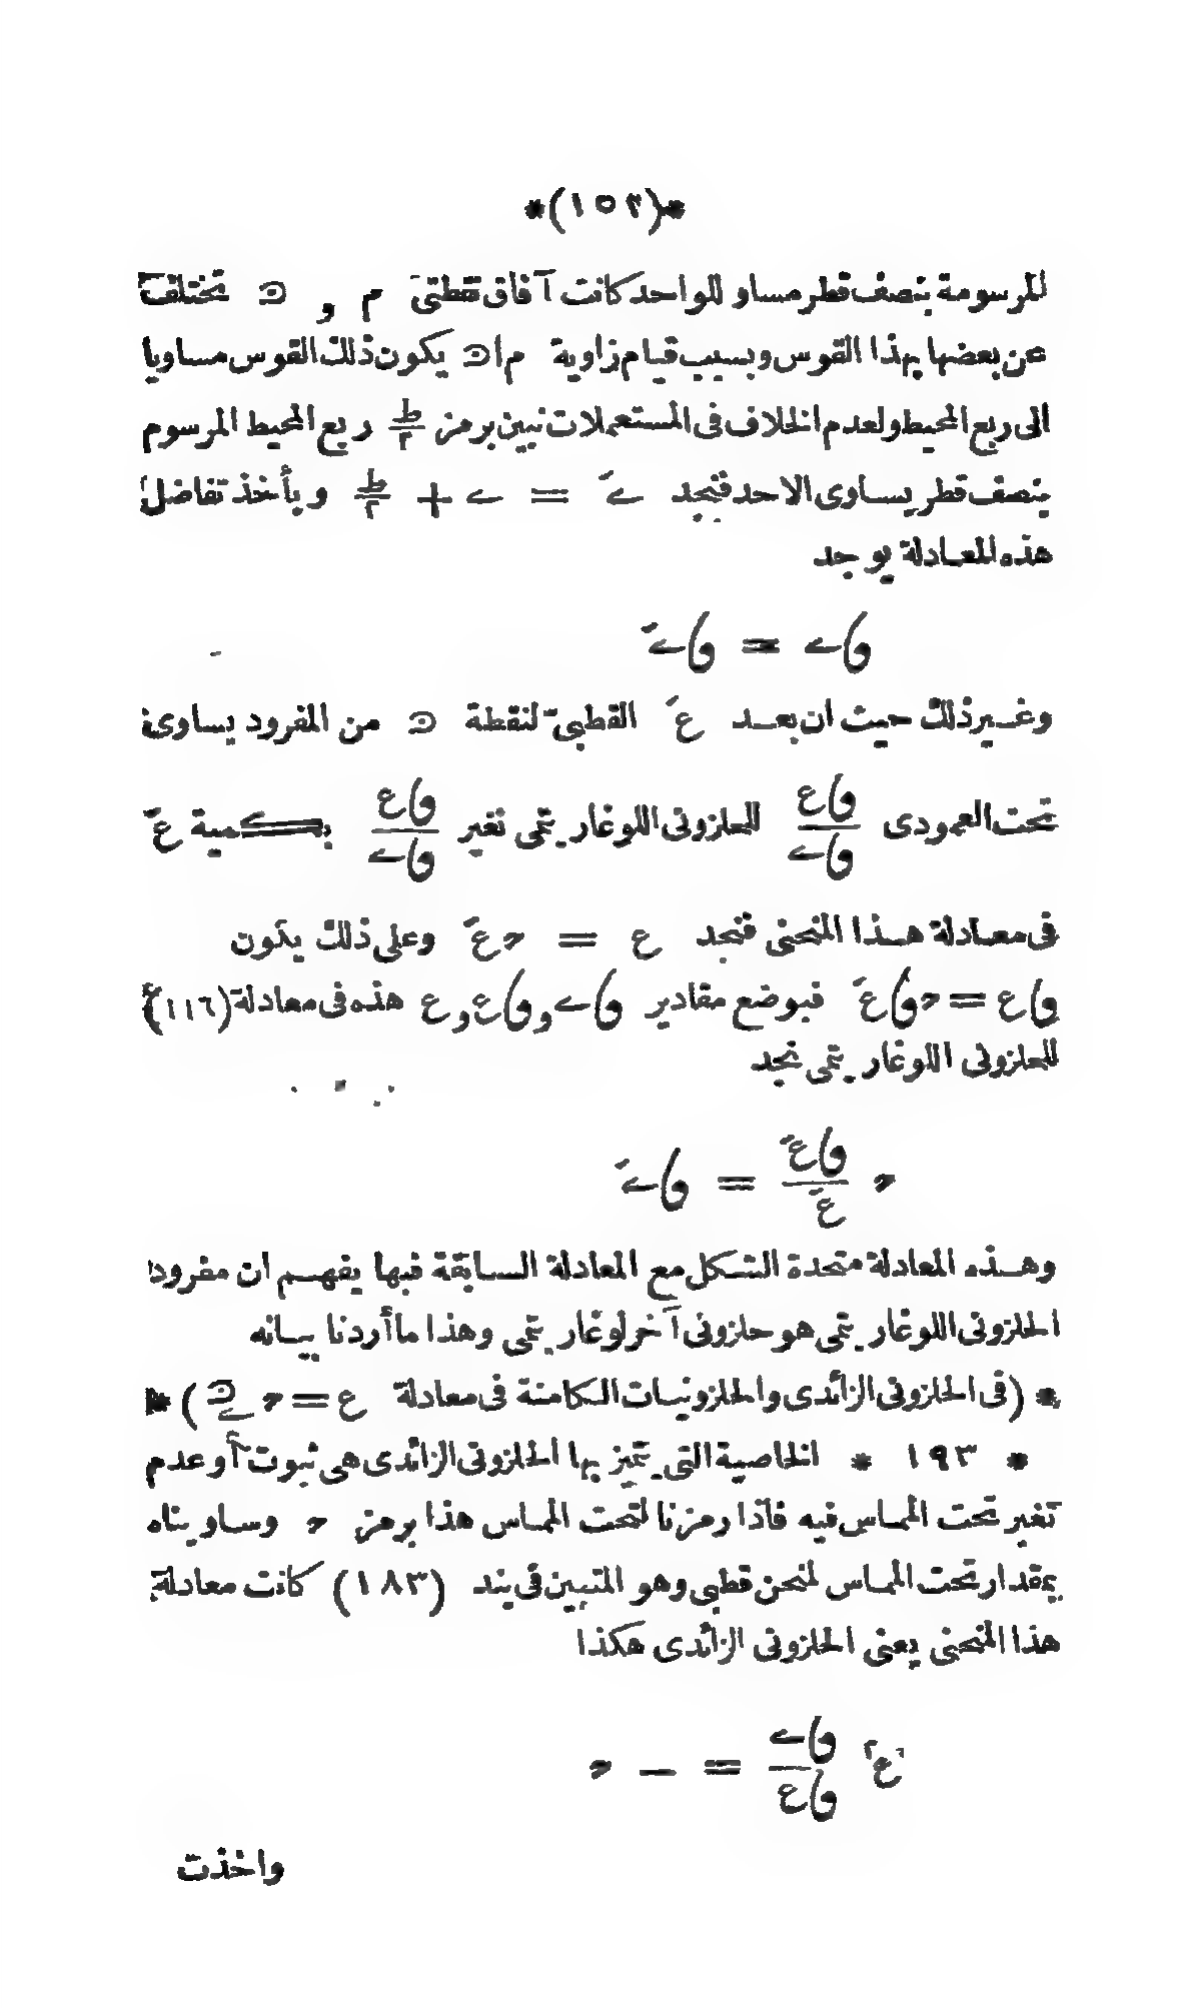 *(١٥٢)*
المرسومة بنصف قطر مساو للواحد كانت آفاق نقطتى م و ں تختلف
عن بعضها بهذا القوس وبسبب قيام زاوية م ا ں يكون ذلك القوس مساويا
الى ربع المحيط ولعدم الخلاف فى المستعملات نبين برمز ط/٢ ربع المحيط المرسوم
بنصف قطر يساوى الاحد فنجد ےَ = ے + ط/٢ وبأخذ تفاضل
هذه المعادلة يوجد
ڡاے = ڡاےَ
وغير ذلك حيث ان بعد عَ القطبى لنقطة ں من المفرود يساوى
تحت العمودى ڡاع/ڡاے للحلزونى اللوغاريتمى نغير ڡاع/ڡاے بكمية عَ
فى معادلة هذا المنحنى فنجد ع = حعَ وعلى ذلك يكون
ڡاع = حڡاعَ فبوضع مقادير ڡاے و ڡاع و ع هذه فى معادلة (١١٦)
للحلزونى اللوغاريتمى نجد
ح ڡاعَ/عَ = ڡاےَ
وهذه المعادلة متحدة الشكل مع المعادلة السابقة فبها يفهم ان مفرود
الحلزونى اللوغاريتمى هو حلزونى آخر لوغاريتمى وهذا ما أردنا بيانه
* (فى الحلزونى الزائدى والحلزونيات الكامنة فى معادلة ع = حے^ں) *
* ١٩٣ * الخاصية التى يتميز بها الحلزونى الزائدى هى ثبوت أو عدم
تغير تحت المماس فيه فاذا رمزنا لتحت المماس هذا برمز ح وساويناه
بمقدار تحت المماس لمنحن قطبى وهو المتبين فى بند (١٨٣) كانت معادلة
هذا المنحنى يعنى الحلزونى الزائدى هكذا
ع٢ ڡاے/ڡاع = — ح
واخذت